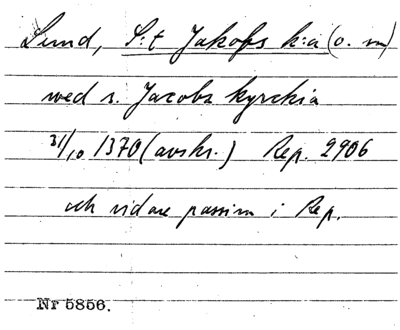 Lund, S:t Jakobs k:a (o. m)
wed s. Jacobs kyrckia
31/10 1370 (avskr.) Rep. 2906
och vidare passim i Rep.
Nr 5856.